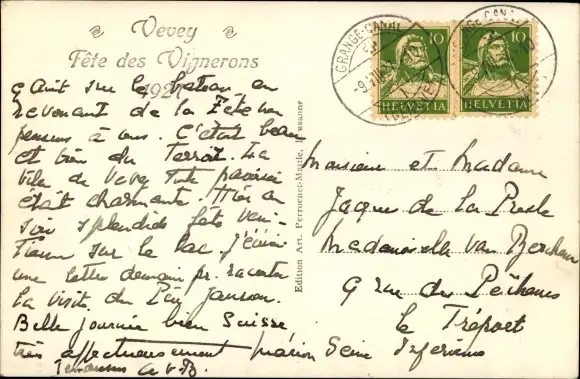 Vevey
Fête des Vignerons
1927
écrit sur le bateau, en
revenant de la Fête nous
pensons à vous. C'était beau
et bien du Terroir. La
ville de Vevey toute pavoisée
était charmante. Hier au
soir splendide fête véni-
tienne sur le lac. J'écrirai
une lettre demain pr. raconter
la visite du
Belle journée bien Suisse
très affectueusement
A v B.
GRANGE-CANAL
(GENÈVE)
10 10
HELVETIA HELVETIA
Edition Art. Perrochet-Matile, Lausanne
Monsieur et Madame
Jaques de la Presle
Mademoiselle van Berchem
9 rue des Pêcheurs
le Tréport
Seine Inférieure